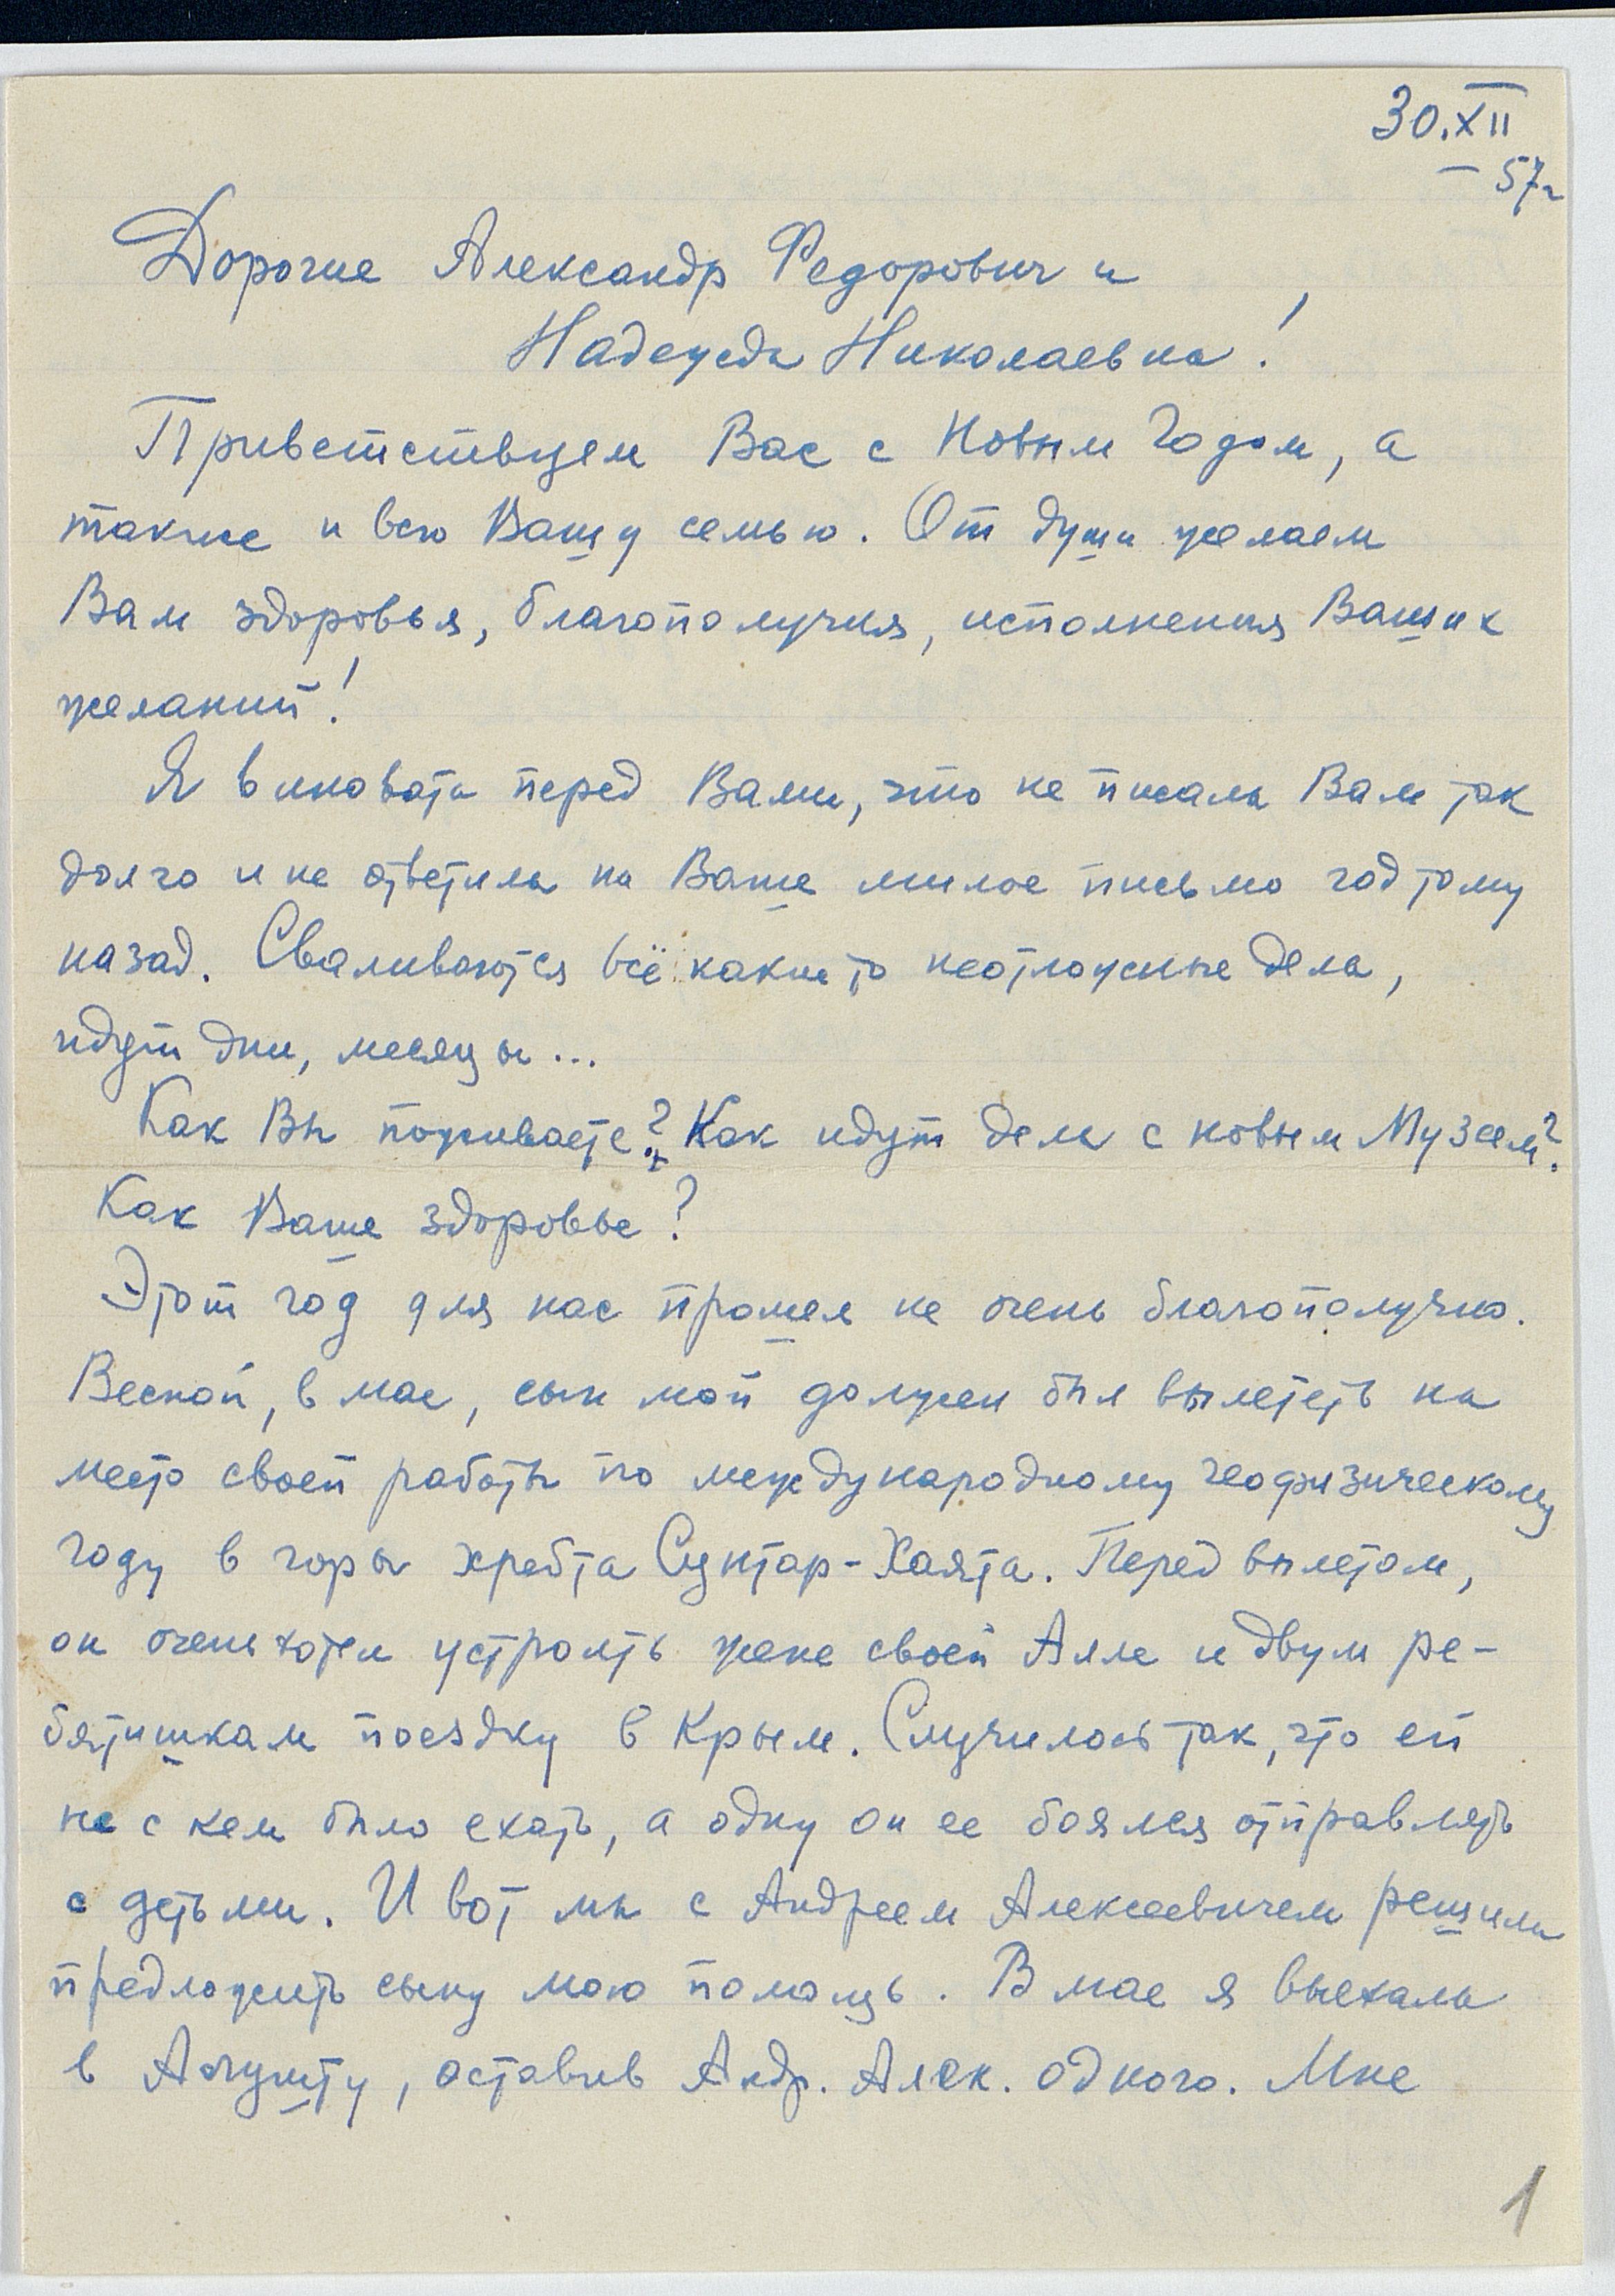 30.XII
– 57г
Дорогие Александр Федорович и
Надежда Николаевна!
Приветствуем Вас с Новым Годом, а
также и всю Вашу семью. От души желаем
Вам здоровья, благополучия, исполнения Ваших
желаний!
Я виновата перед Вами, что не писала Вам так
долго и не ответила на Ваше милое письмо год тому
назад. Сваливаются всё какие то неотложные дела,
идут дни, месяцы...
Как Вы поживаете? Как идут дела с новым Музеем?
Как Ваше здоровье?
Этот год для нас прошел не очень благополучно.
Весной, в мае, сын мой должен был вылететь на
место своей работы по международному геофизическому
году в горы хребта Сунтар-Хаята. Перед вылетом,
он очень хотел устроить жене своей Алле и двум ре-
бятишкам поездку в Крым. Случилось так, что ей
не с кем было ехать, а одну он ее боялся отправлять
с детьми. И вот мы с Андреем Алексеевичем решили
предложить сыну мою помощь. В мае я выехала
в Алушту, оставив Андр. Алек. одного. Мне
1